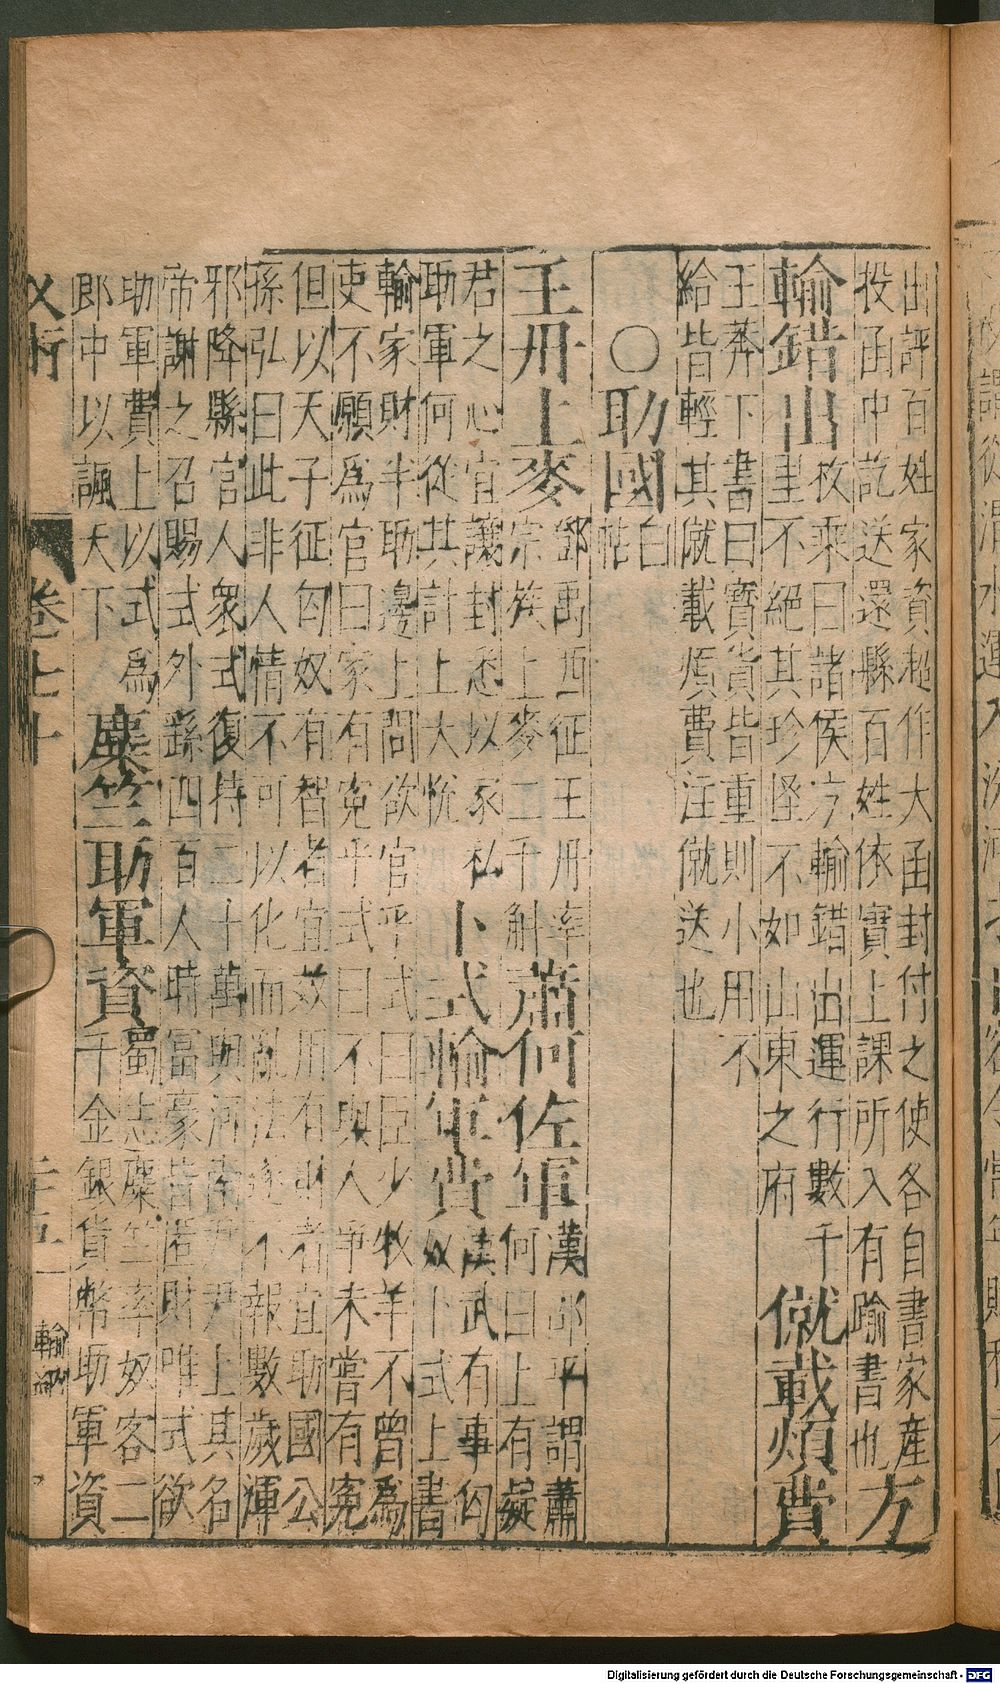 出評百姓家資超作大函封付之使各自書家產
投函中訖送還縣百姓依實上課所入有踰書也 方
輸錯出 枚乘曰諸侯方輸錯出運行數千
里不絕其珍怪不如山東之府 僦載煩費
王莽下書曰寶貨皆重則小用不
給皆輕其僦載煩費注僦送也
○助國 白
帖
王丹上麥 鄧禹西征王丹率
宗族上麥二千斛 蕭何佐軍 漢 平謂蕭
何曰上有疑
君之心宜讓封悉以家私
助軍何從其計上大悅 卜式輸軍費 漢武有事匈
奴卜式上書
輸家財半助邊上問欲官乎式曰臣少牧羊不曾為
吏不願為官曰家有寃乎式曰不與人爭未嘗有寃
但以天子征匈奴有智者宜效用有財者宜助國公
孫弘曰此非人情不可以化而亂法遂不報數歲渾
邪降縣官人衆式復持二十萬與河南 尹上其名
帝謝之召賜式外繇四百人時富豪皆匿財唯式欲
助軍費上以式為
郎中以諷天下 麋竺助軍資 蜀志麋竺率奴客二
千金銀貨幣助軍資
卷七十
輸
Digitalisierung gefördert durch die Deutsche Forschungsgemeinschaft - DFG